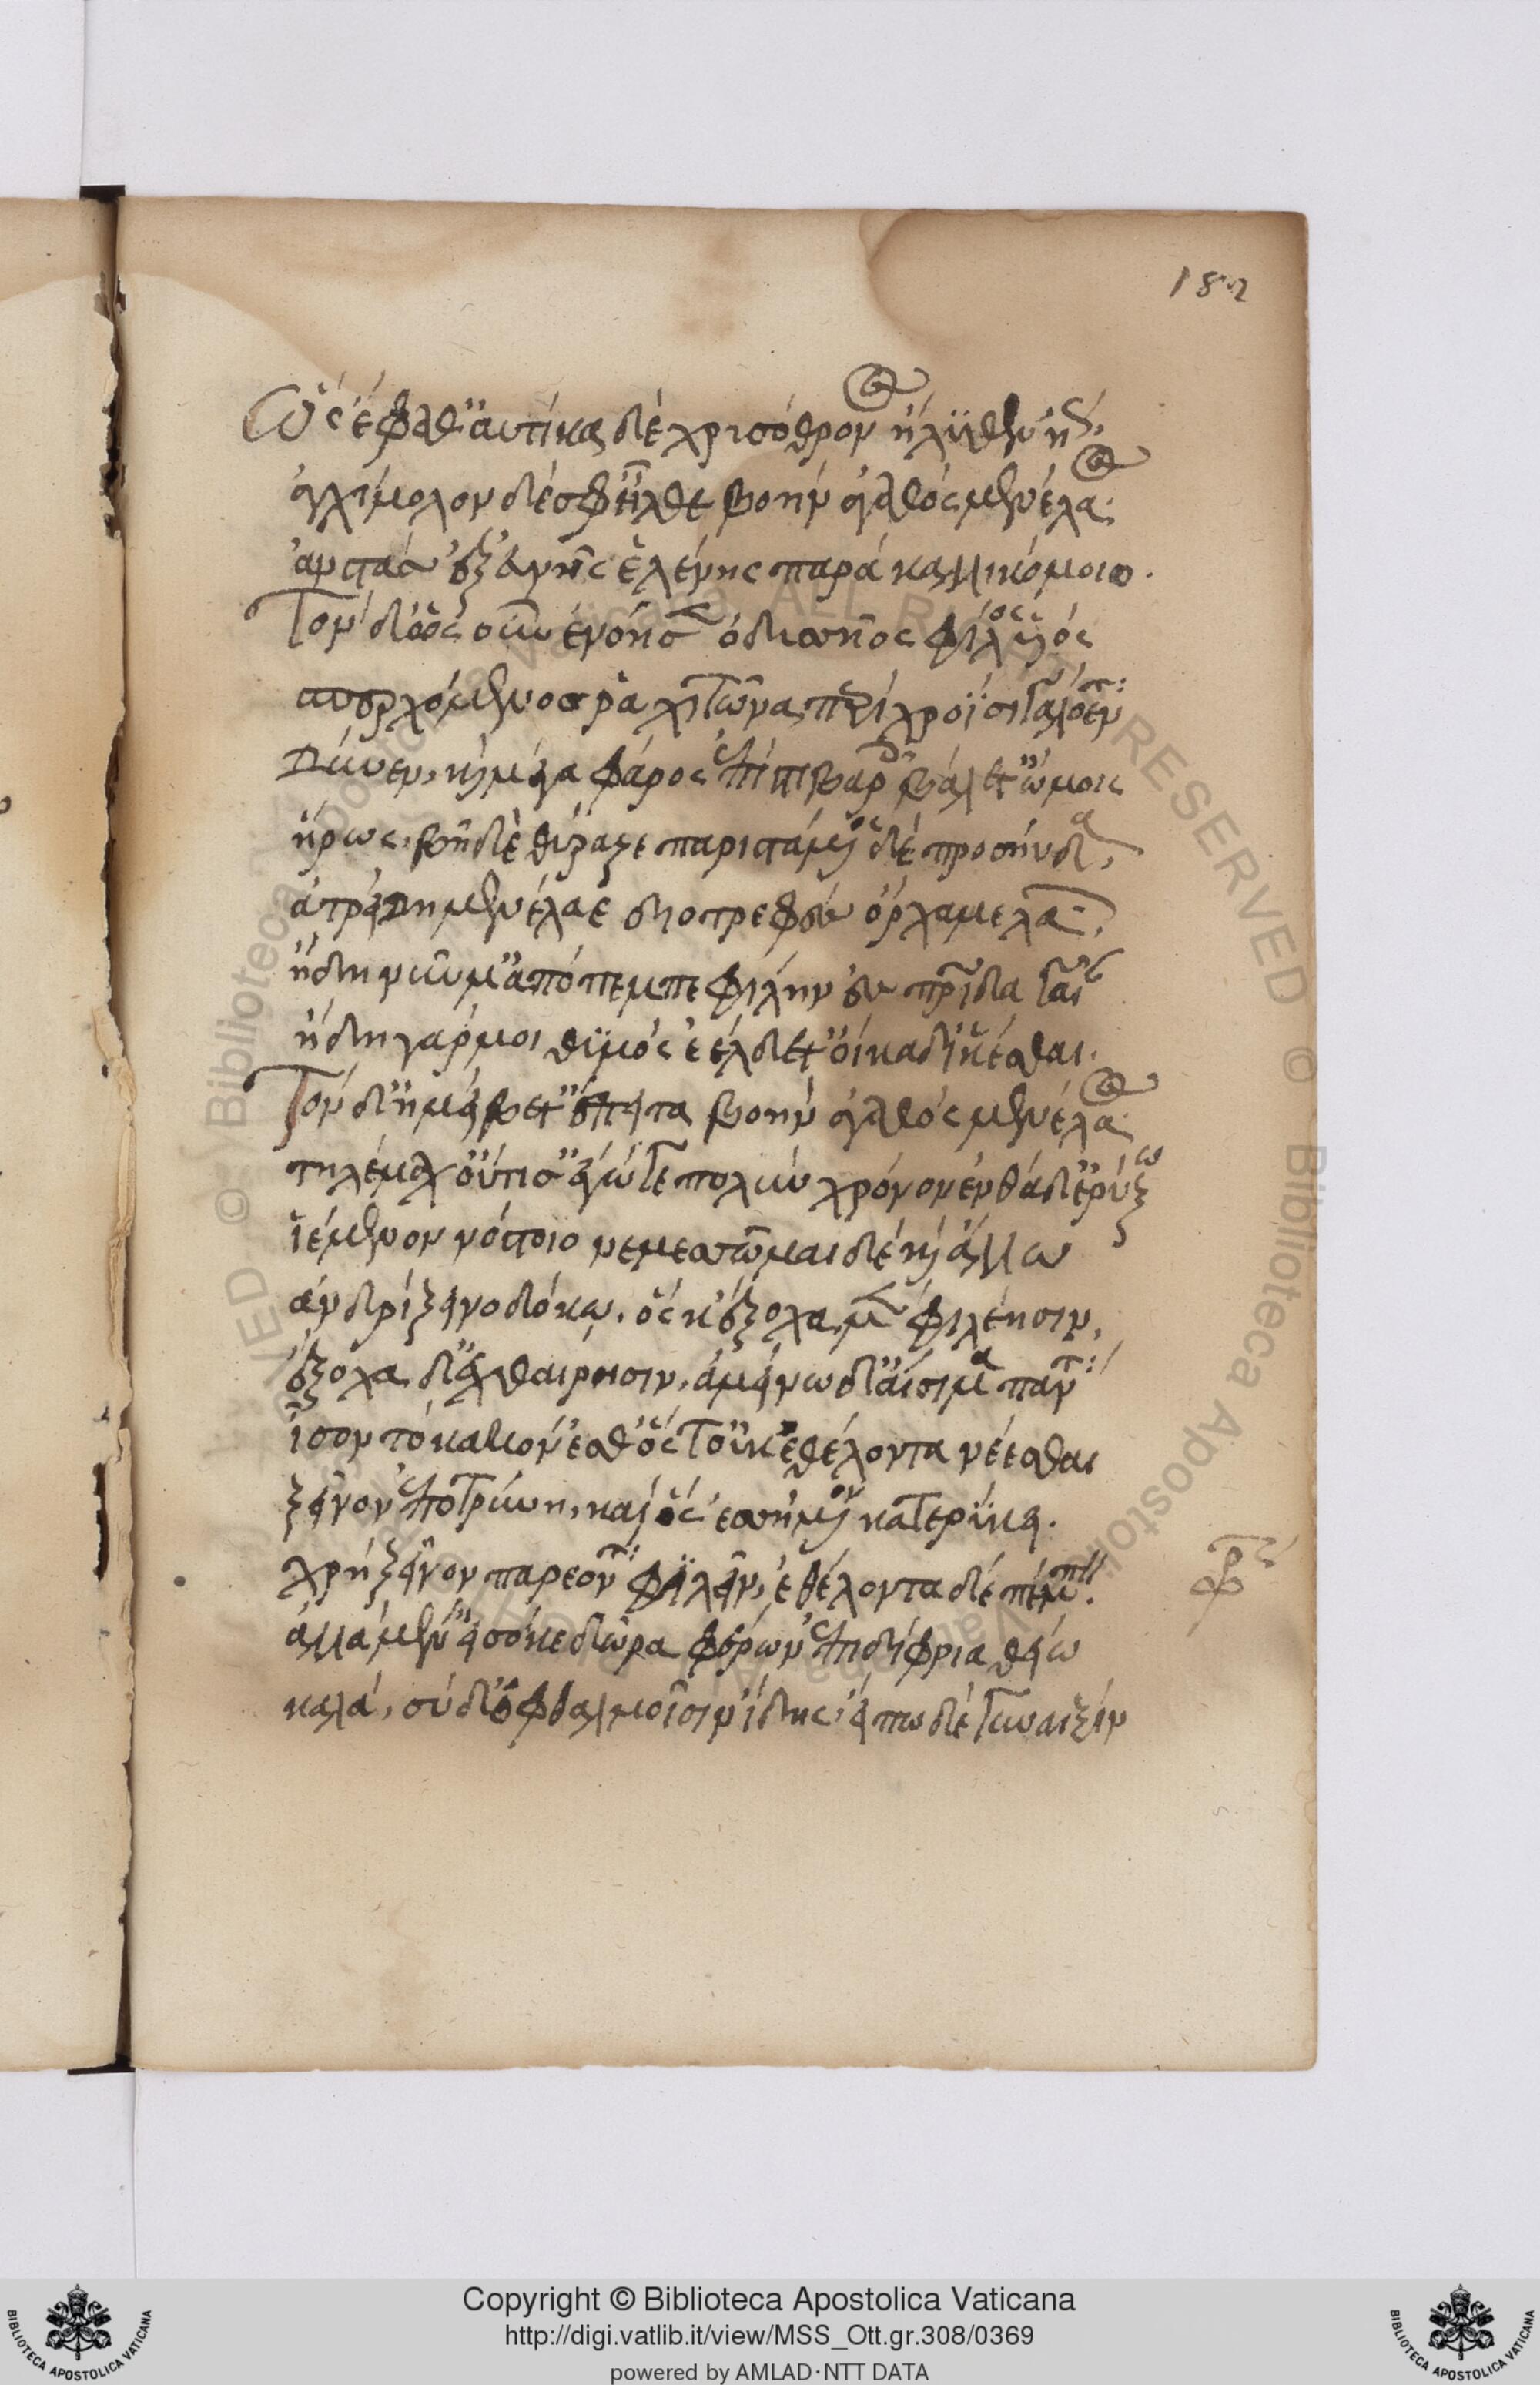 182
Ὣς ἔφαθ' αὐτίκα δὲ χρυσόθρονος ἤλυθεν ἠώς,
ἀγχίμολον δέ σφ' ἦλθε βοὴν ἀγαθὸς μενέλαος
ἀνστὰς ἐξ εὐνῆς ἑλένης παρὰ καλλικόμοιο.
Τὸν δ' ὡς οὖν ἐνόησεν ὀδυσσῆος φίλος υἱὸς
σπερχόμενος ῥα χιτῶνα περὶ χροῒ σιγαλόεντα
δῦνεν, καὶ μέγα φᾶρος ἐπὶ στιβαροῖς βάλετ' ὤμοις
ἥρως, βῆ δὲ θύραζε παριστάμενος δὲ προσηύδα,
ἀτρείδη μενέλαε διοτρεφὲς ὄρχαμε λαῶν,
ἤδη νῦν μ' ἀπόπεμπε φίλην ἐς πατρίδα γαῖαν
ἤδη γάρ μοι θυμὸς ἐέλδεται οἴκαδ' ἱκέσθαι.
Τὸν δ' ἠμείβετ' ἔπειτα βοὴν ἀγαθὸς μενέλαος
τηλέμαχ' οὔτι σ' ἐγώ γε πολὺν χρόνον ἐνθάδ' ἐρύξω
ἱέμενον νόστοιο νεμεσσῶμαι δὲ καὶ ἄλλω
ἀνδρὶ ξεινοδόκω, ὅς κ' ἔξοχα μὲν φιλέησιν,
ἔξοχα δ' ἐχθαίρησιν, ἀμείνω δ' αἴσιμα πάντα
ἶσόν τοι κακόν ἐσθ' ὅς τ' οὐκ ἐθέλοντα νέεσθαι
ξεῖνον ἐποτρύνῃ, καὶ ὃς ἐσσύμενον κατερύκει.
χρὴ ξεῖνον παρεόντα φιλεῖν, ἐθέλοντα δὲ πέμπειν.
ἀλλὰ μέν' εἰσόκε δῶρα φέρων ἐπιδίφρια θείω
καλά, σὺ δ' ὀφθαλμοῖσιν ἴδης, εἴπω δὲ γυναιξὶν
Copyright © Biblioteca Apostolica Vaticana
http://digi.vatlib.it/view/MSS_Ott.gr.308/0369
powered by AMLAD·NTT DATA